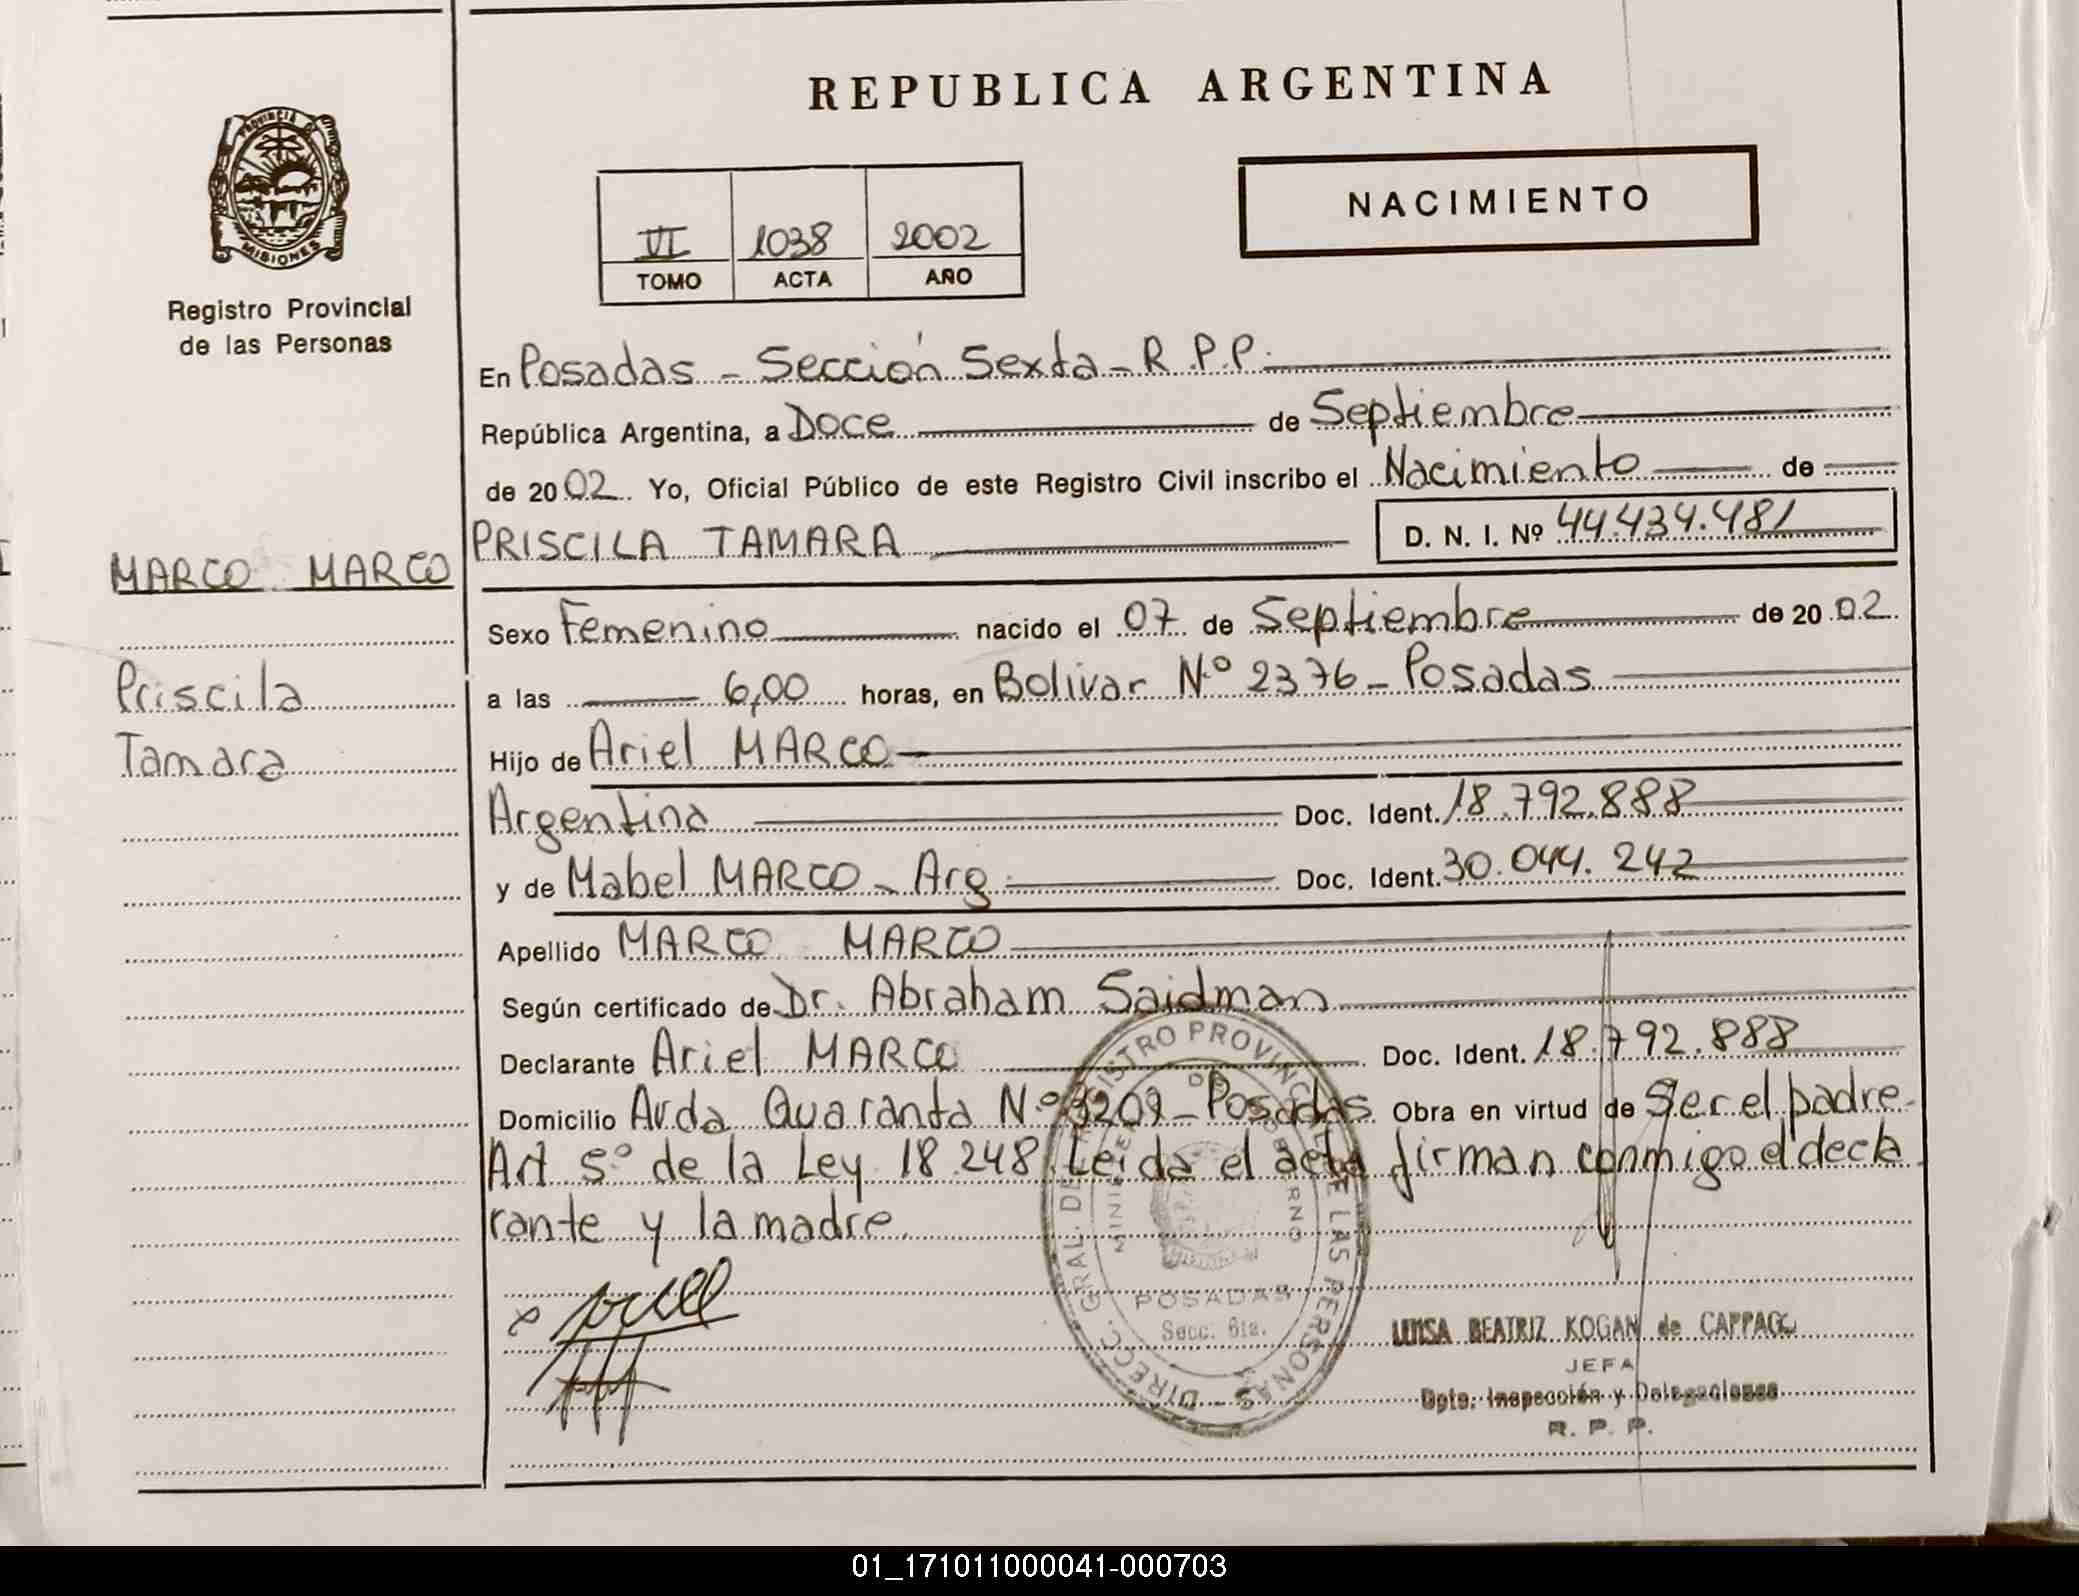 REPUBLICA ARGENTINA
PROVINCIA DE
MISIONES
Registro Provincial
de las Personas
VI 1038 2002
TOMO ACTA AÑO
NACIMIENTO
En Posadas - Sección Sexta - R.P.P.
República Argentina, a Doce de Septiembre
de 2002. Yo, Oficial Público de este Registro Civil inscribo el Nacimiento de
PRISCILA TAMARA D. N. I. Nº 44.434.481
MARCO MARCO
Priscila
Tamara
Sexo Femenino nacido el 07 de Septiembre de 2002.
a las 6,00 horas, en Bolivar Nº 2376 - Posadas
Hijo de Ariel MARCO
Argentina Doc. Ident. 18.792.888
y de Mabel MARCO - Arg. Doc. Ident. 30.044.242
Apellido MARCO MARCO
Según certificado de Dr. Abraham Saidman
Declarante Ariel MARCO Doc. Ident. 18.792.888
Domicilio Avda Quaranta Nº 3209 - Posadas Obra en virtud de Ser el padre.
Art 5º de la Ley 18.248. Leida el acta firman conmigo el decla
rante y la madre.
DIRECC. GRAL. DEL REGISTRO PROVINCIAL DE LAS PERSONAS
MINISTERIO DE GOBIERNO
POSADAS
Secc. 6ta.
BEATRIZ KOGAN de
JEFA
Dpto. Inspección y Delegaciones
R. P. P.
01_171011000041-000703